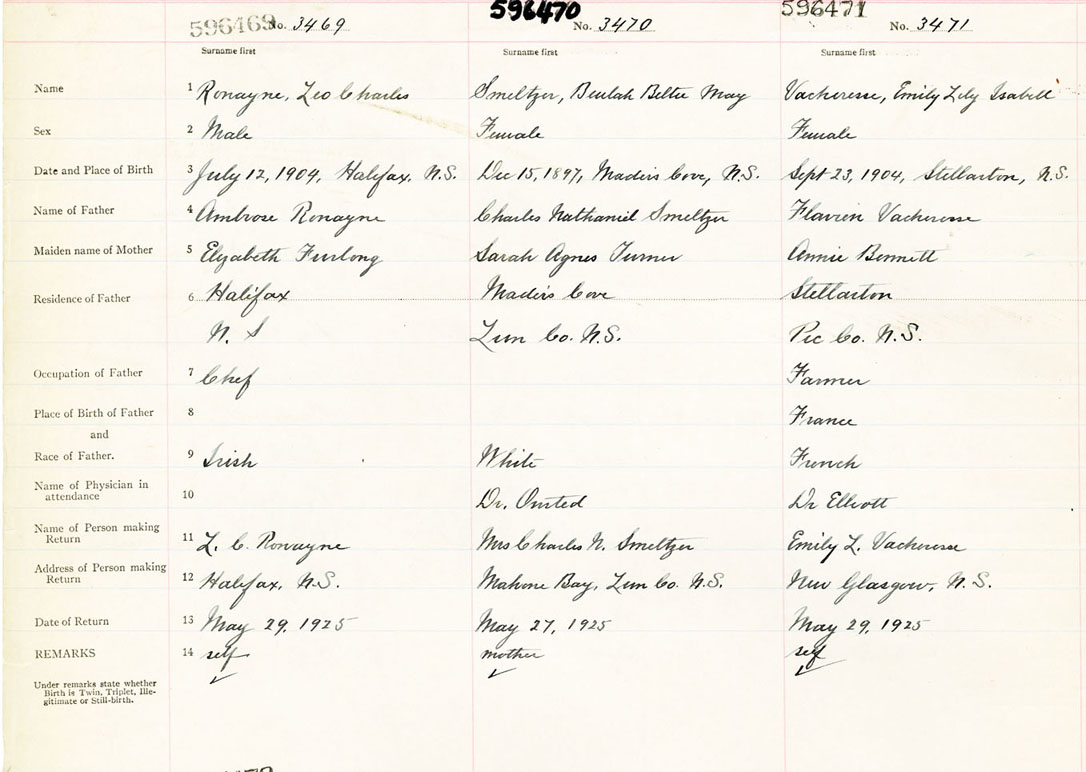 596469 No. 3469 596470 No. 3470 596471 No. 3471
Surname first Surname first Surname first
Name 1 Ronayne, Leo Charles Smeltzer, Beulah Beltie May Vacheresse, Emily Lily Isabell
Sex 2 Male Female Female
Date and Place of Birth 3 July 12, 1904, Halifax, N.S. Dec 15, 1897, Maders Cove, N.S. Sept 23, 1904, Stellarton, N.S.
Name of Father 4 Ambrose Ronayne Charles Nathaniel Smeltzer Flavien Vacheresse
Maiden name of Mother 5 Elizabeth Furlong Sarah Agnes Turner Annie Bennett
Residence of Father 6 Halifax Maders Cove Stellarton
N. S Lun Co. N.S. Pic Co. N.S.
Occupation of Father 7 Chef Farmer
Place of Birth of Father 8 France
and
Race of Father. 9 Irish White French
Name of Physician in
attendance 10 Dr. Dr Elliott
Name of Person making
Return 11 L. C. Ronayne Mrs Charles N. Smeltzer Emily L. Vacheresse
Address of Person making
Return 12 Halifax, N.S. Mahone Bay, Lun Co. N.S. New Glasgow, N.S.
Date of Return 13 May 29, 1925 May 27, 1925 May 29, 1925
REMARKS 14 self mother self
Under remarks state whether
Birth is Twin, Triplet, Ille-
gitimate or Still-birth.